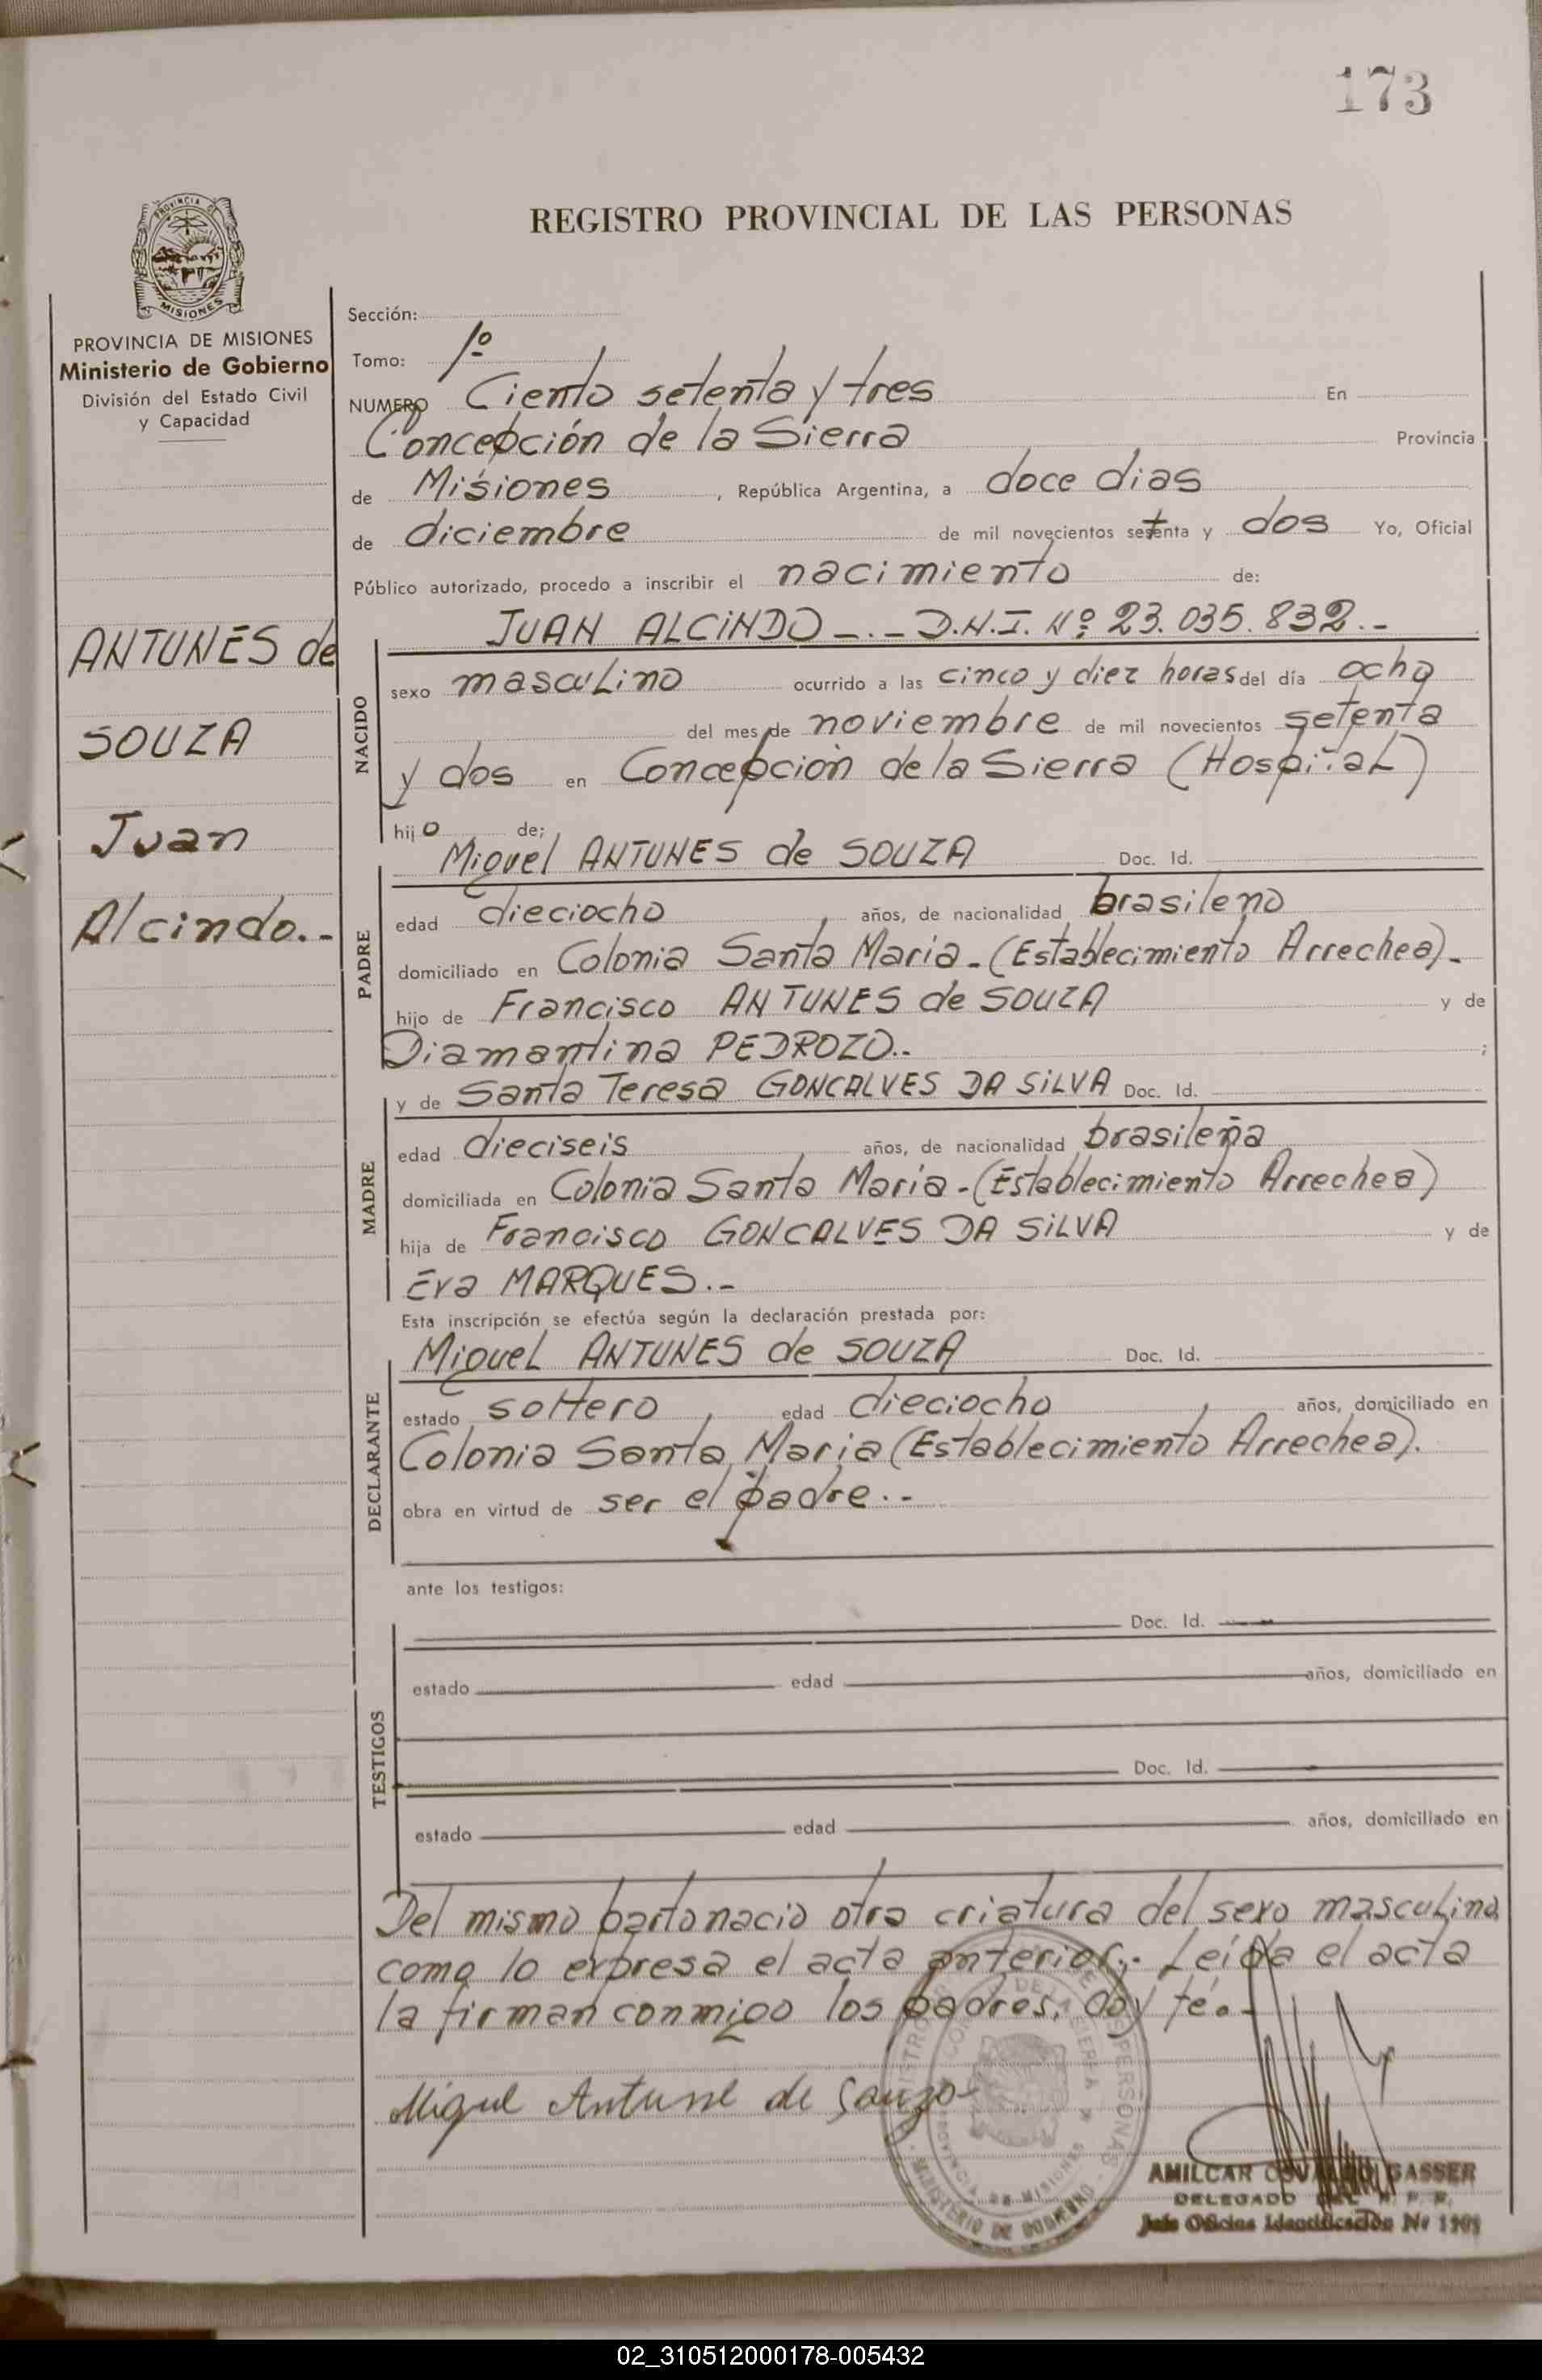 173
REGISTRO PROVINCIAL DE LAS PERSONAS
PROVINCIA DE MISIONES
Ministerio de Gobierno
División del Estado Civil
y Capacidad
ANTUNES de
SOUZA
Juan
Alcindo.-
Sección:
Tomo: 1º
NUMERO Ciento setenta y tres En
Concepción de la Sierra Provincia
de Misiones, República Argentina, a doce dias
de diciembre de mil novecientos setenta y dos Yo, Oficial
Público autorizado, procedo a inscribir el nacimiento de:
JUAN ALCINDO -.- D.N.I. Nº 23.035.832.-
NACIDO
sexo masculino ocurrido a las cinco y diez horas del día ocho
del mes de noviembre de mil novecientos setenta
y dos en Concepción de la Sierra (Hospital)
hijo de;
Miguel ANTUNES de SOUZA Doc. Id.
PADRE
edad dieciocho, años, de nacionalidad brasileno
domiciliado en Colonia Santa Maria - (Establecimiento Arrechea).-
hijo de Francisco ANTUNES de SOUZA y de
Diamantina PEDROZO.- ;
y de Santa Teresa GONCALVES DA SILVA Doc. Id.
MADRE
edad dieciseis años, de nacionalidad brasileña
domiciliada en Colonia Santa María - (Establecimiento Arrechea)
hija de Francisco GONCALVES DA SILVA y de
Eva MARQUES.-
Esta inscripción se efectúa según la declaración prestada por:
Miguel ANTUNES de SOUZA Doc. Id.
DECLARANTE
estado soltero, edad dieciocho años, domiciliado en
Colonia Santa Maria (Establecimiento Arrechea).
obra en virtud de ser el padre.-
ante los testigos:
Doc. Id.
TESTIGOS
estado edad años, domiciliado en
Doc. Id.
estado edad años, domiciliado en
Del mismo parto nacio otra criatura del sexo masculino
como lo expresa el acta anterior.- Leída el acta
la firman conmigo los padres, doy fé.-
Migul Antune de Souza
AMILCAR OSVALDO GASSER
DELEGADO DEL R. P. P.
Jefe Oficina Identificación Nº
02_310512000178-005432